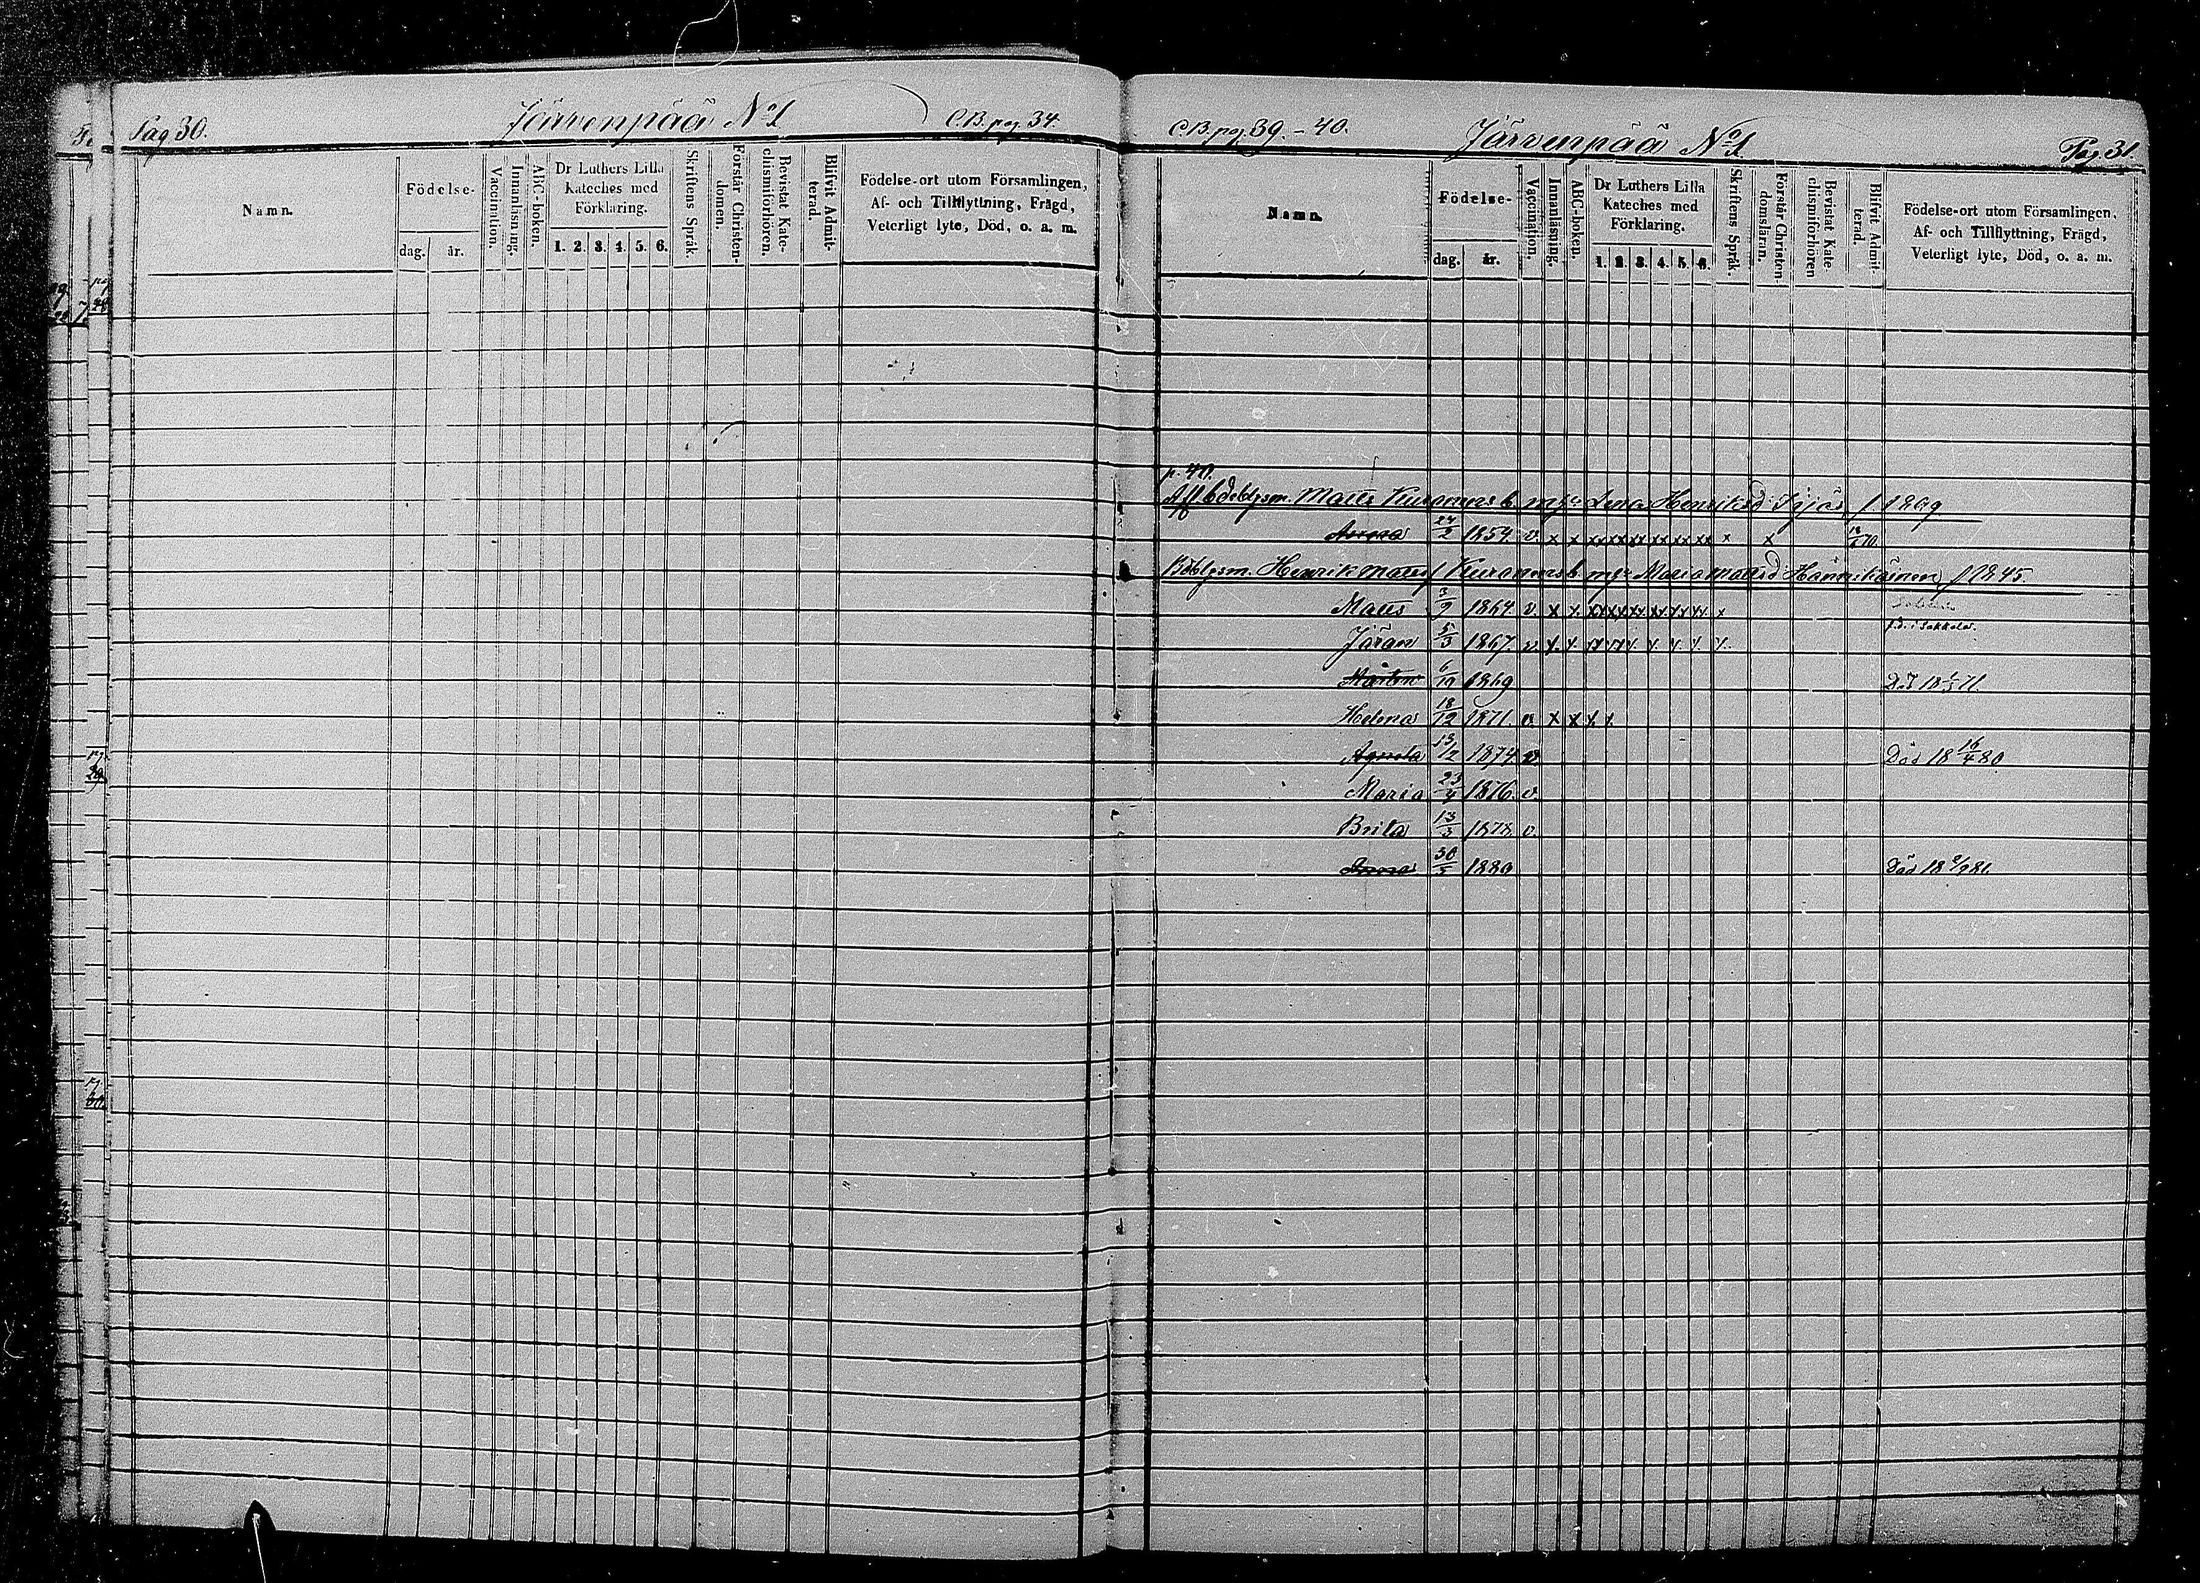 Pag 30.
Järvenpää No 1
C.B. pag. 34.
Namn.
Födelse-
dag. år.
Vaccination.
Innanläsning.
ABC-boken.
Dr Luthers Lilla Kateches med Förklaring.
1. 2. 3. 4. 5. 6.
Skriftens Språk.
Förstår Christen-domen.
Bevistat Kate-chismiförhören.
Blifvit Admit-terad.
Födelse-ort utom Församlingen,
Af- och Tillflyttning, Frägd,
Veterligt lyte, Död, o. a. m.
C.B. pag. 39.-40.
Järvenpää No 1.
Pag. 31
Namn.
Födelse-
dag. år.
Vaccination.
Innanläsning.
ABC-boken.
Dr Luthers Lilla Kateches med Förklaring.
1. 2. 3. 4. 5. 6.
Skriftens Språk.
Förstår Christen-domsläran.
Bevistat Kate chismiförhören
Blifvit Admit-terad.
Födelse-ort utom Församlingen,
Af- och Tillflyttning, Frägd,
Veterligt lyte, Död, o. a. m.
p. 40.
Matts Lena Henriksd
24/2 1854 v. x x xx xx xx xx xx xx x x
Henrik Maria Mattsd Hännikäinen f 1845.
Matts 3/9 1864 v. x x. xx xx xx xx xx xx. x
Jöran 5/3 1867. v. x. x. x. x. x. x.
f.d. i Sakkola.
Mårten 6/10 1869
Helena 18/12 1871. v. x x x. x.
Agneta 13/12 1874. v. Död 18 16/4 80.
Maria 23/4 1876. v.
Brita 13/3 1878. v.
30/5 1880 Död 18 8/9 81.